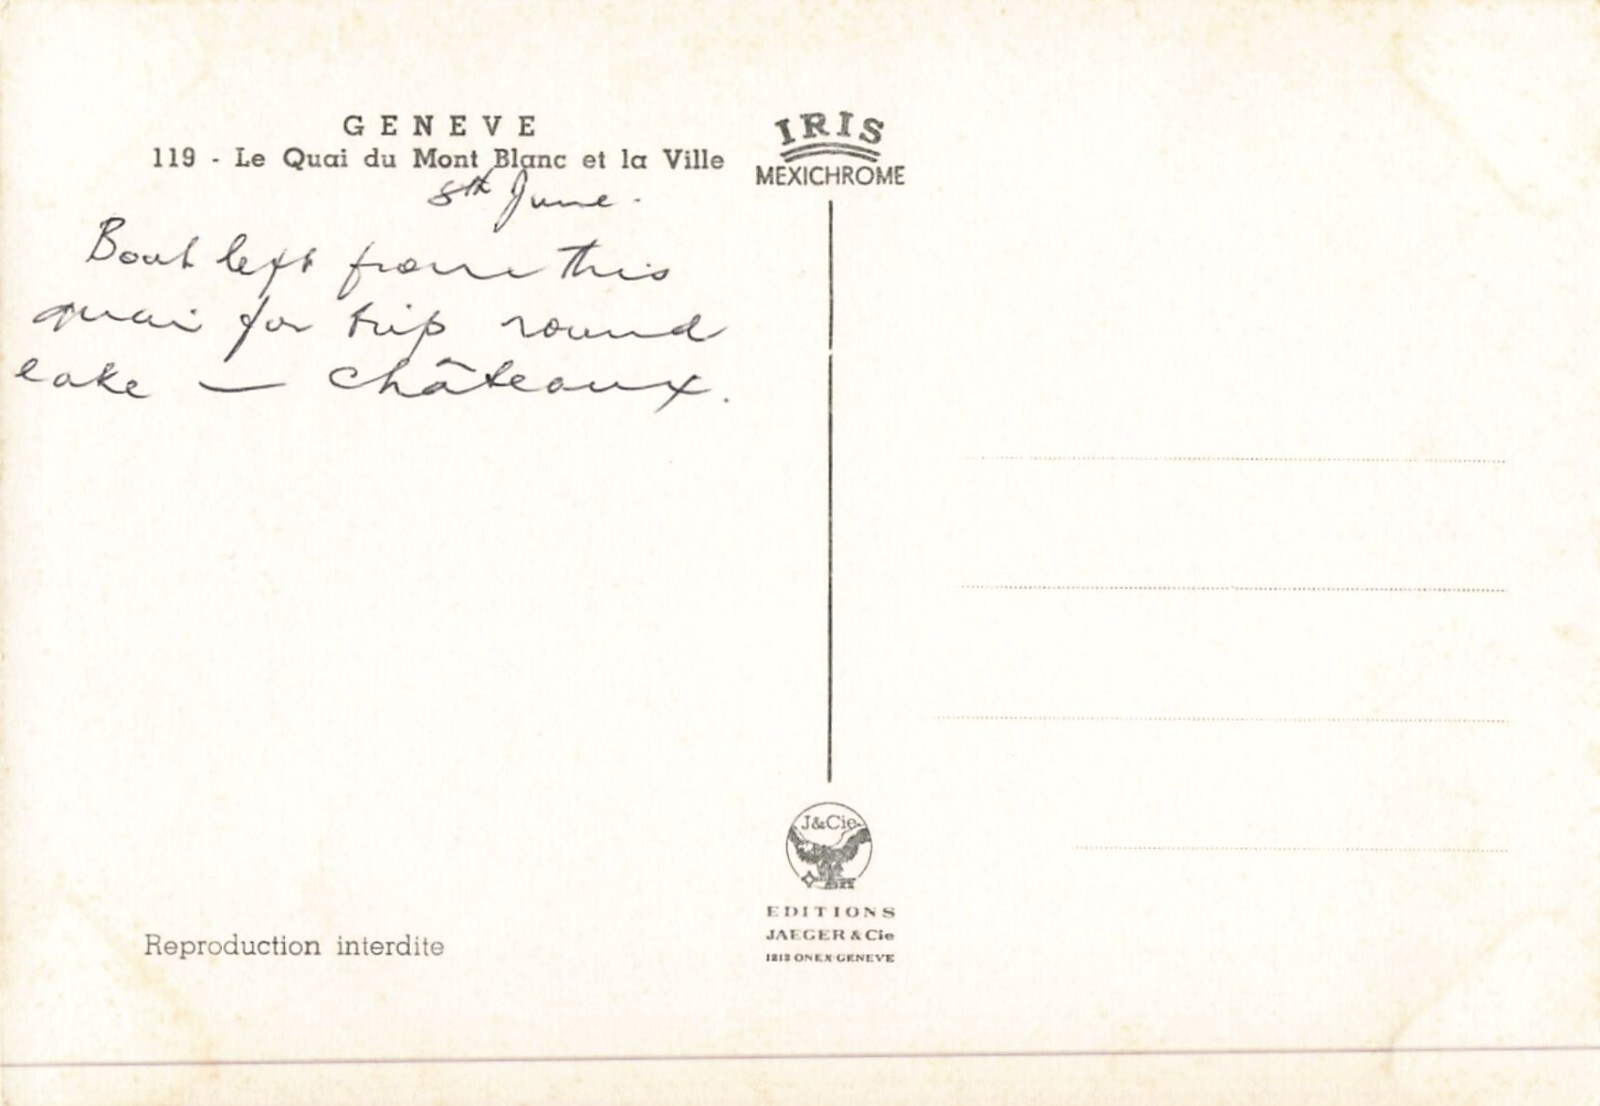 GENEVE
119 - Le Quai du Mont Blanc et la Ville
8th June.
Boat left from this
quai for trip round
lake — châteaux.
Reproduction interdite
IRIS
MEXICHROME
J&Cie
EDITIONS
JAEGER & Cie
1213 ONEX-GENEVE